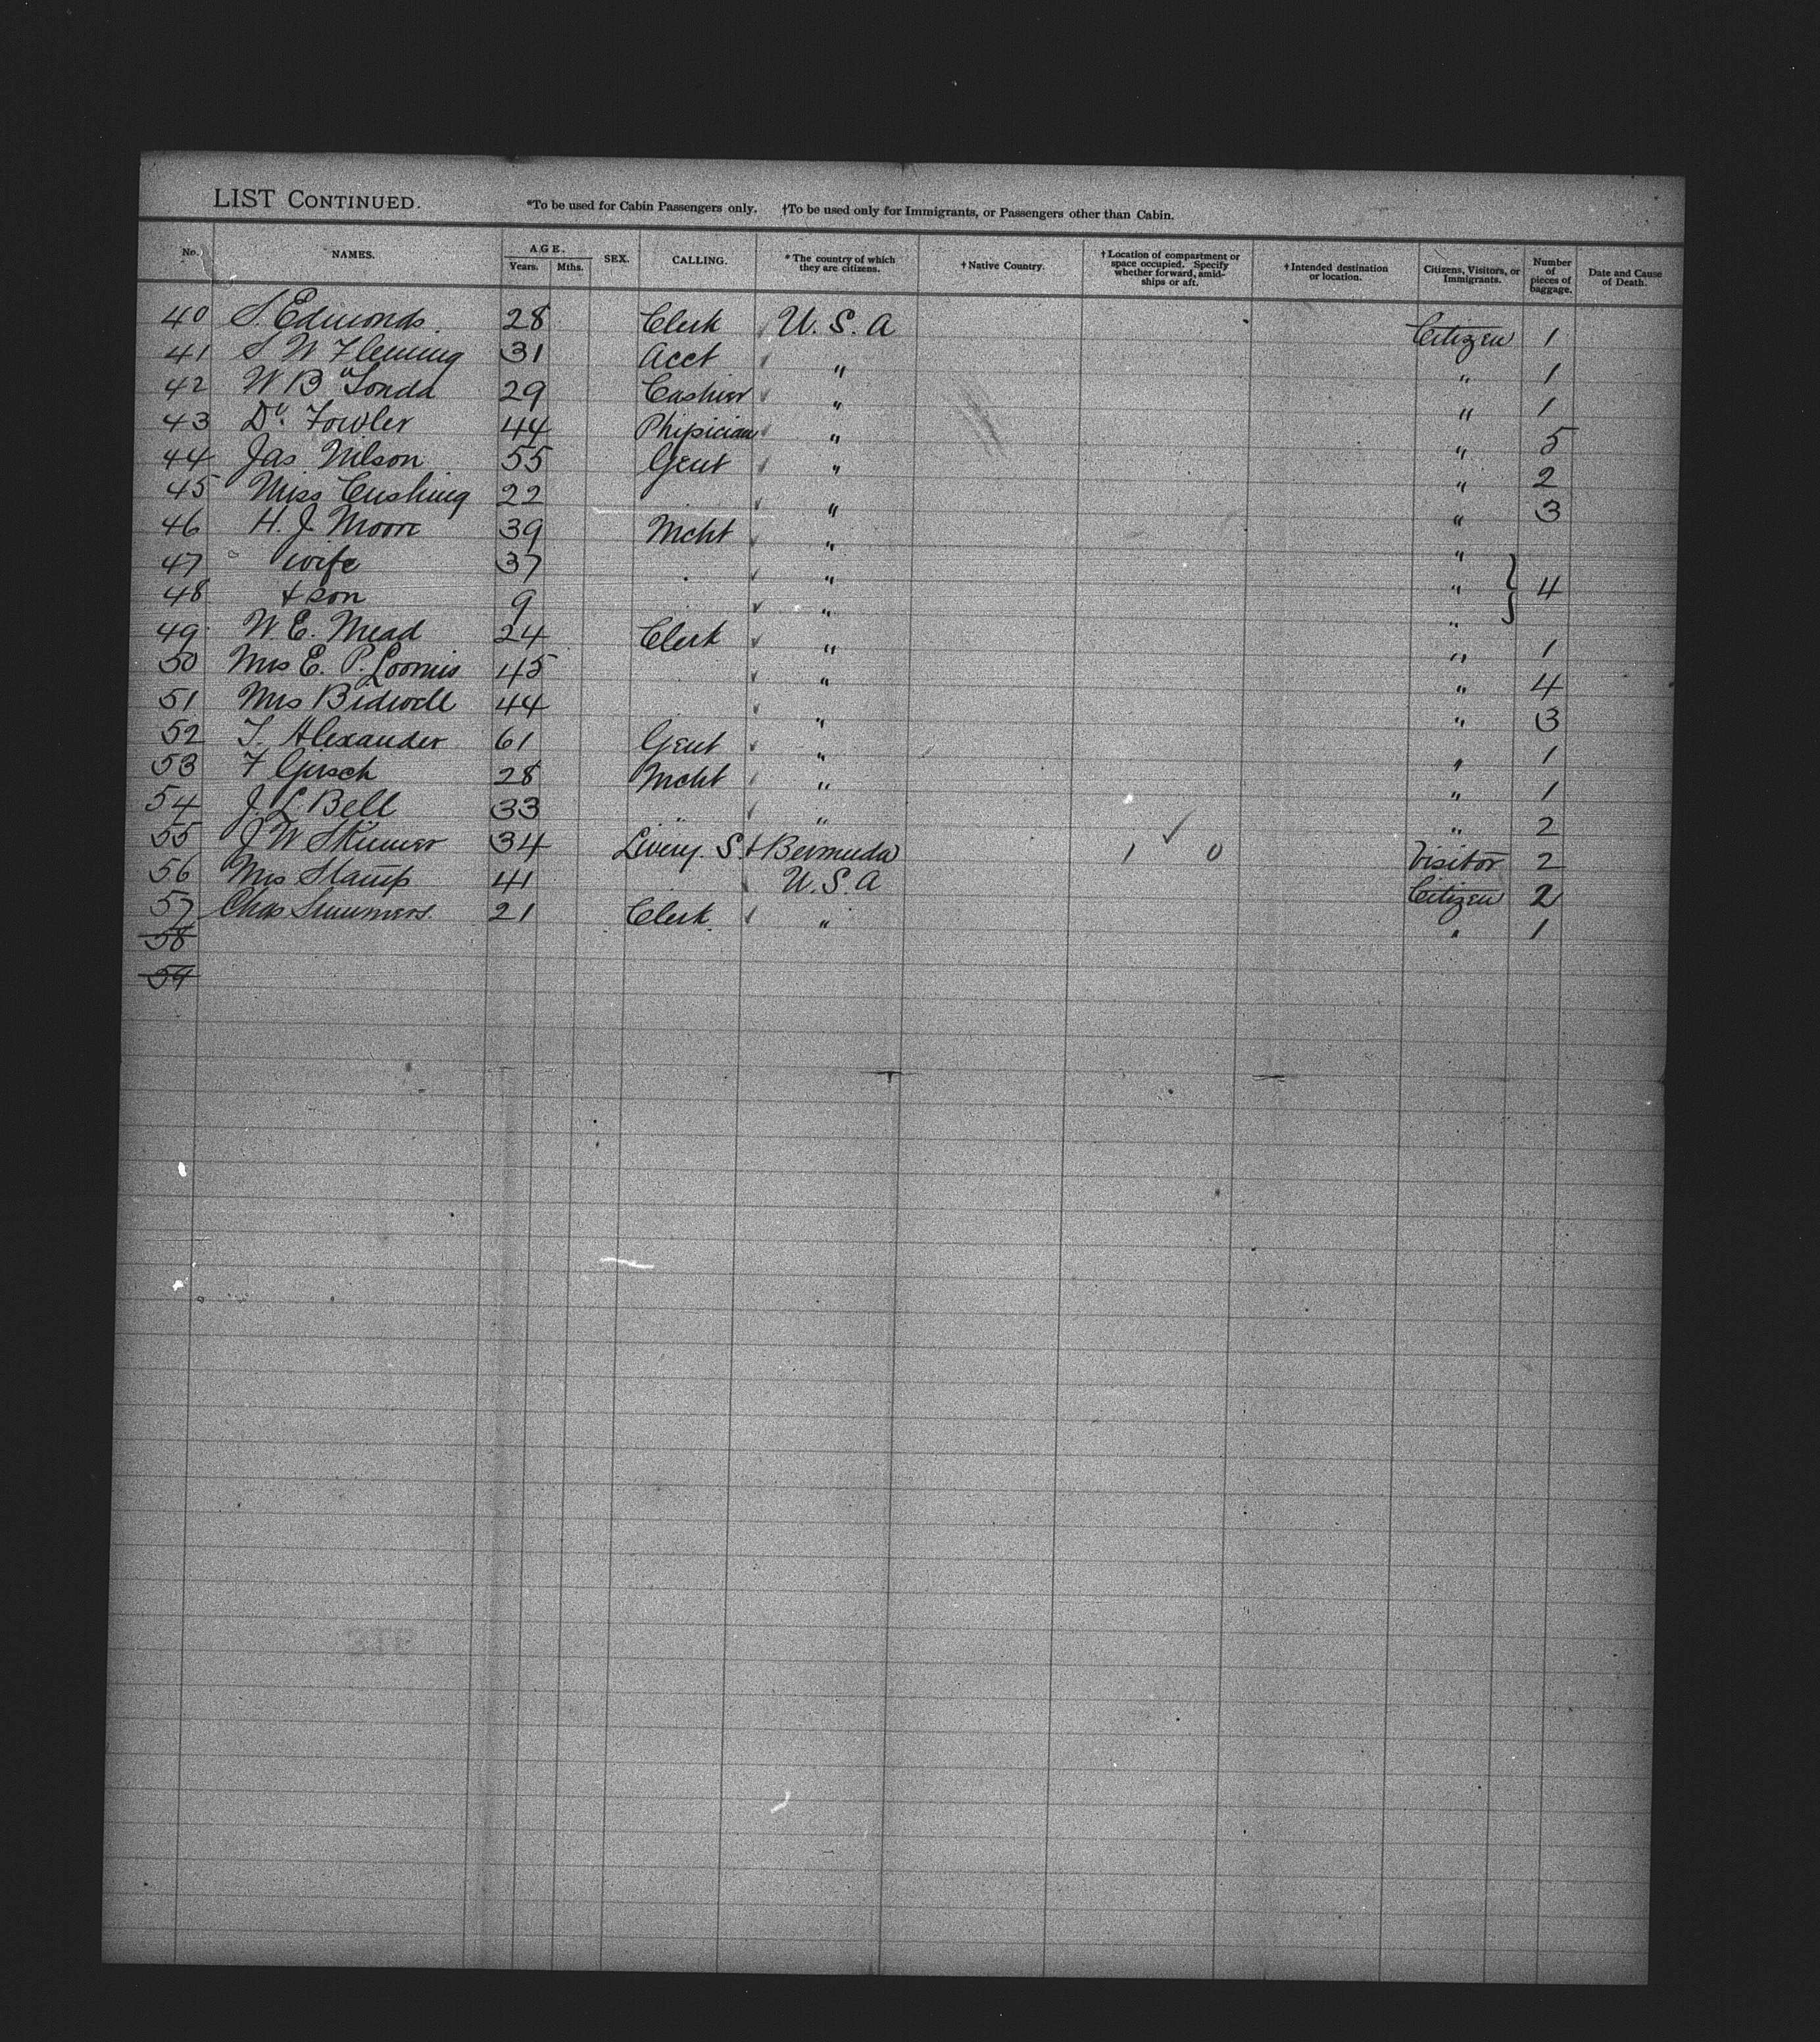 LIST CONTINUED. *To be used for Cabin Passengers only. †To be used only for Immigrants, or Passengers other than Cabin.
No. NAMES. AGE. Years. Mths. SEX. CALLING. *The country of which they are citizens. †Native Country. †Location of compartment or space occupied. Specify whether forward, amid-ships or aft. †Intended destination or location. Citizens, Visitors, or Immigrants. Number of pieces of baggage. Date and Cause of Death.
40 S. Edmonds. 28 Clerk U.S.A Citizen 1
41 S W Fleming 31 Acct " " 1
42 W B Fonda 29 Cashier " " 1
43 Dr. Fowler 44 Phipician " " 5
44 Jas. Nilson 55 Gent " " 2
45 Miss Cushing 22 " " 3
46 H. J. Moon 39 Mcht " "
47 wife 37 " " } 4
48 + son 9 " "
49 W. E. Mead 24 Clerk " " 1
50 Mrs E. P. Loomis 45 " " 4
51 Mrs Bidwell 44 " " 3
52 T. Alexander 61 Gent " " 1
53 F Girsch 28 Mcht " " 1
54 J. L. Bell 33 " " " 2
55 J W Skinner 34 Livery. S. Bermuda 1 ✓ 0 Visitor 2
56 Mrs Stamp 41 U.S.A Citizen 2
57 Chas Summers. 21 Clerk. " " 1
58
59